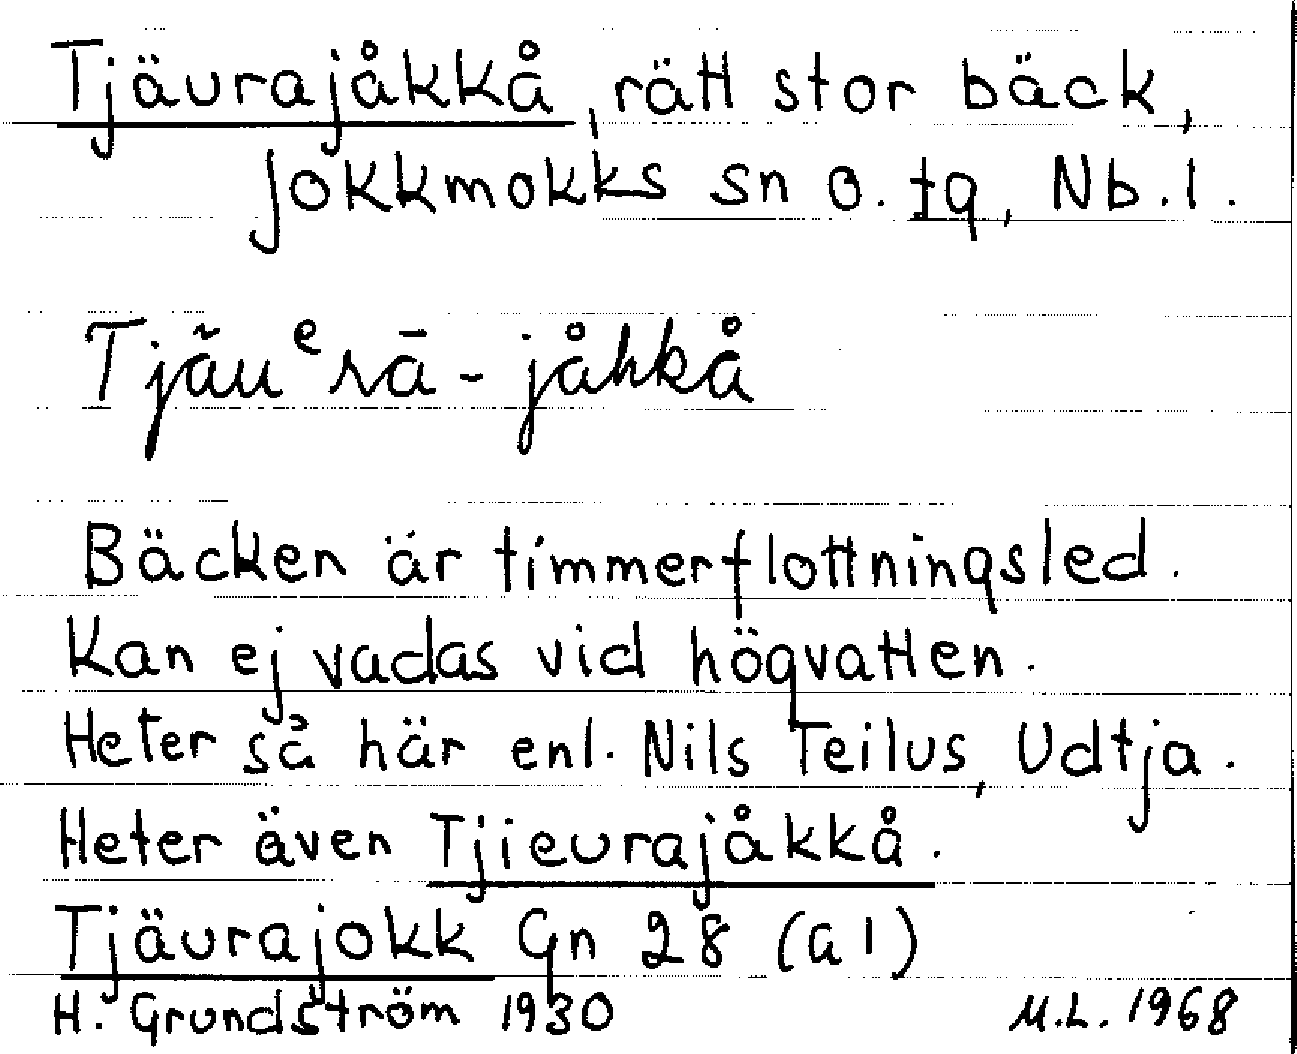 Tjäurajåkkå, rätt stor bäck,
Jokkmokks sn o. tg, Nb. l.
Tjäuᵉrā-jåhkå
Bäcken är timmerflottningsled.
Kan ej vadas vid högvatten.
Heter så här enl. Nils Teilus, Udtja.
Heter även Tjieurajåkkå.
Tjäurajokk Gn 28 (a 1)
H. Grundström 1930 M.L. 1968